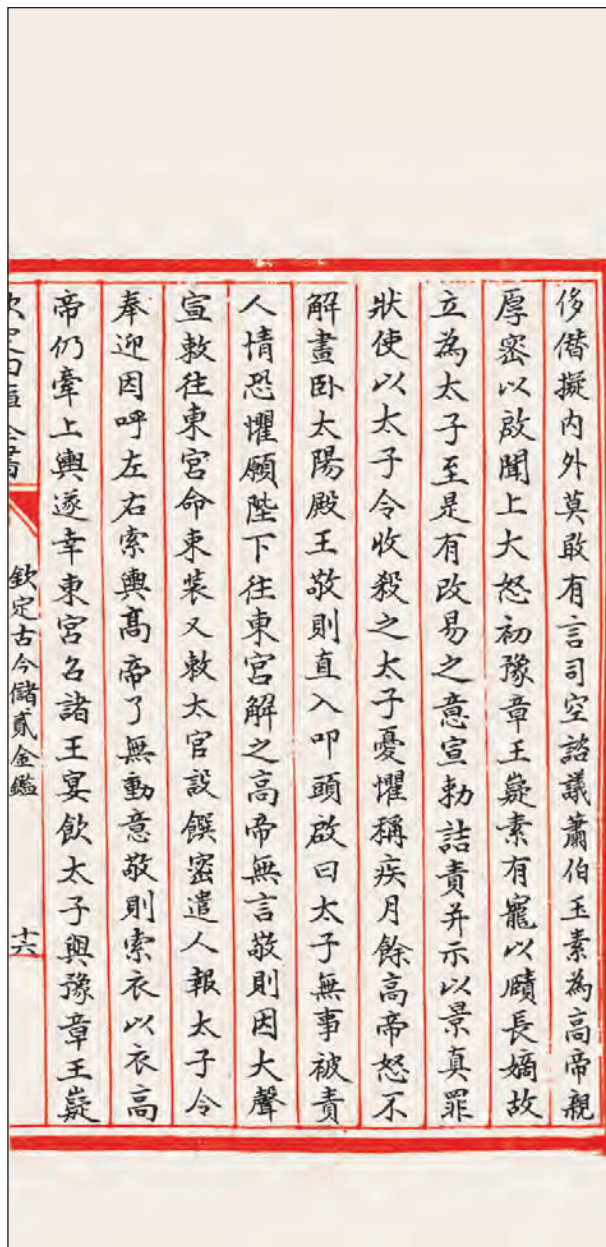 侈僭擬内外莫敢有言司空諮議蕭伯玉素為高帝親
厚密以啟聞上大怒初豫章王嶷素有寵以賾長嫡故
立為太子至是有改易之意宣勅詰責并示以景真罪
狀使以太子令收殺之太子憂懼稱疾月餘高帝怒不
解晝卧太陽殿王敬則直入叩頭啟曰太子無事被責
人情恐懼願陛下往東宮解之高帝無言敬則因大聲
宣敕往東宮命束装又敕太官設饌密遣人報太子令
奉迎因呼左右索輿高帝了無動意敬則索衣以衣高
帝仍牽上輿遂幸東宮召諸王宴飲太子與豫章王嶷
欽定四庫全書
欽定古今儲貳金鑑
十六